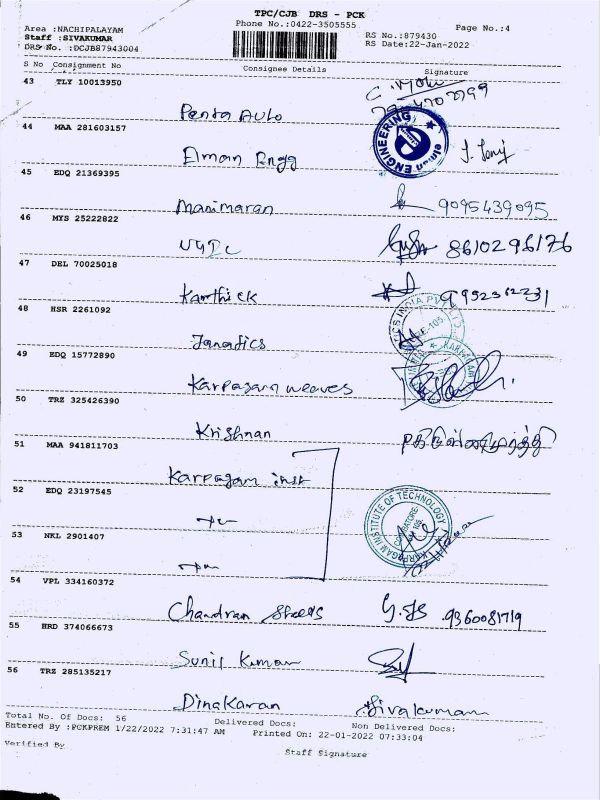 TPC/CJB DRS - PCK
Phone No.:0422-3505555
Page No.:4
Area :NACHIPALAYAM
Staff :SIVAKUMAR
DRS No. :DCJB87943004
RS No.:879430
RS Date:22-Jan-2022
S No Consignment No Consignee Details Signature
43 TLY 10013950
Penta Auto
44 MAA 281603157
Elman Engg
elman ENGINEERING
45 EDQ 21369395
Manimaran 9095439095
46 MYS 25222822
8610296176
47 DEL 70025018
Karthick
48 HSR 2261092
Janatics
49 EDQ 15772890
Karpagam weaves
50 TRZ 325426390
Krishnan
51 MAA 941811703
Karpagam inst
52 EDQ 23197545
KARPAGAM INSTITUTE OF TECHNOLOGY
53 NKL 2901407
54 VPL 334160372
Chandran Steels 9360081719
55 HRD 374066673
Sunil Kumar
56 TRZ 285135217
Dinakaran Sivakumar
Total No. Of Docs: 56 Delivered Docs: Non Delivered Docs:
Entered By :PCKPREM 1/22/2022 7:31:47 AM Printed On: 22-01-2022 07:33:04
Verified By
Staff Signature